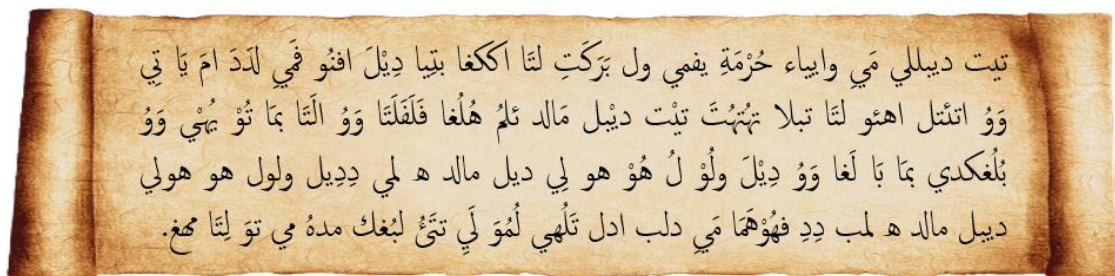 تيت ديبللي مَيِ وايياء حُرْمَةِ يفمي ول بَرَكَتِ لتَا اككغا بتِيا دِيْلَ افنُو فَمَيِ لَدَدَ امَ يَا تِي
وَوُ اتئتل اهئو لتَا تبلا تهُتهُتَ تيْت ديْبل مَالد ئلمُ هُلُغا فَلَفَلَتَا وَوُ الَتَا بمَا تُوْ يُهيْ وَوُ
بُلُغكدي بمَا بَا لَغا وَوُ دِيْلَ ولُوْ لُ هُوْ هو لِي ديل مالد ه لمي دِدِيل ولول هو هولي
ديبل مالد ه لمب دِدِ فهُوْهَمَا مَيِ دلب ادل تَلُهي لُمُوَ لَيِ تتَئُ لبُغك مدهُ مي توَ لِتَا مهغ.